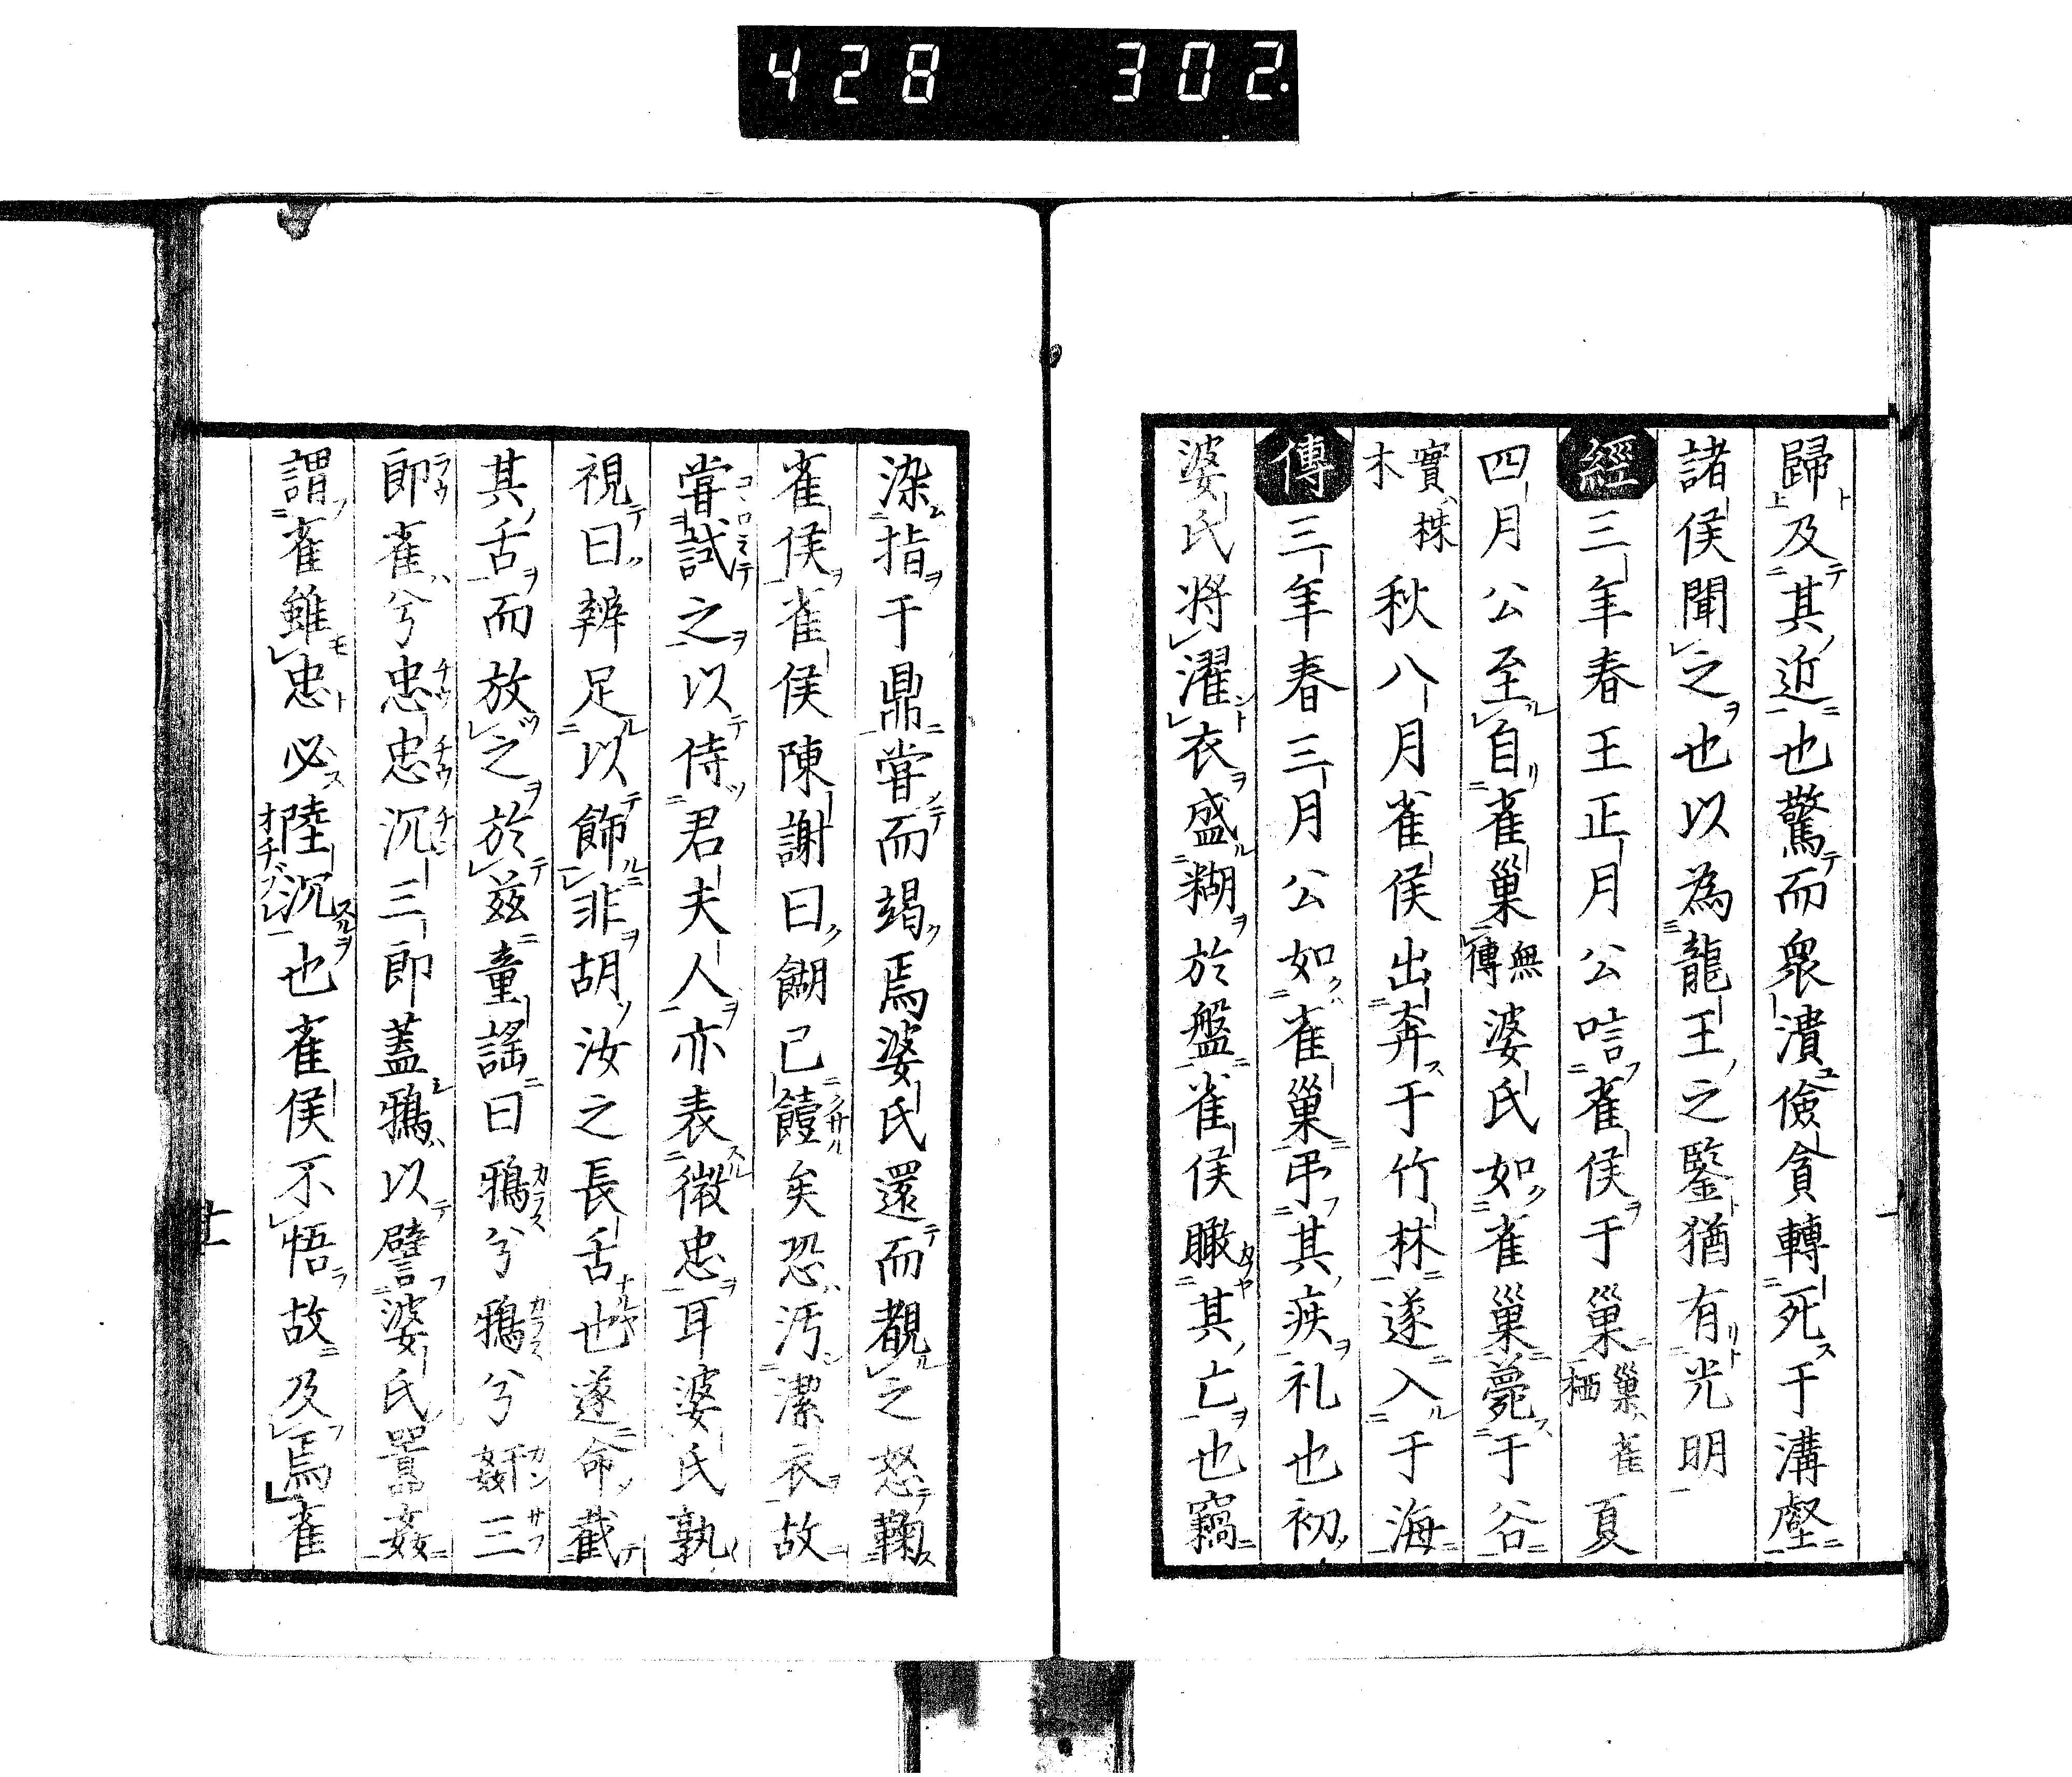 428 302.
歸及其近也驚而衆潰儉貪轉死于溝壑
諸侯聞之也以為龍王之鑒猶有光明
經三年春王正月公唁雀侯于巢巢雀栖夏
四月公至自雀巢無傳婆氏如雀巢薨于谷
實株木秋八月雀侯出奔于竹林遂入于海
傳三年春三月公如雀巢弔其疾礼也初
婆氏將濯衣盛糊於盤雀侯瞰其亡也竊
染指于鼎嘗而竭焉婆氏還而覩之怒鞠
雀侯雀侯陳謝曰餬已饐矣恐汚潔衣故
嘗試之以侍君夫人亦表微忠耳婆氏孰
視曰辨足以飾非胡汝之長舌也遂命截
其舌而放之於茲童謠曰鴉兮鴉兮奸三
郎雀兮忠忠沉三郎蓋鴉以譬婆氏嚚姦
謂雀雖忠必陸沉也雀侯不悟故及焉雀
廿